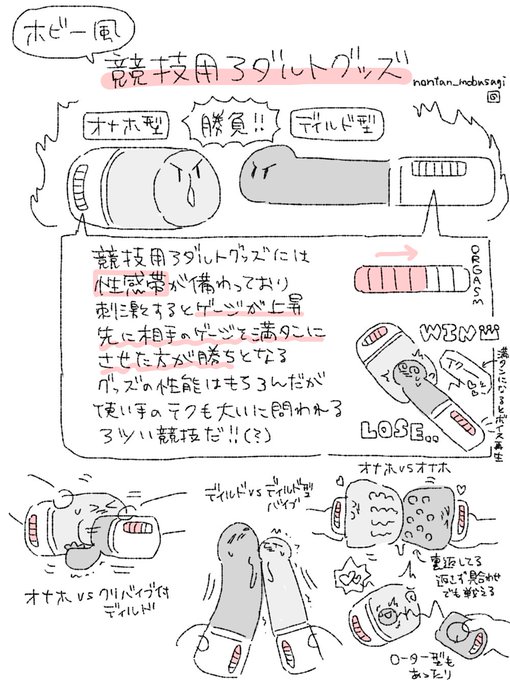 ホビー風
競技用アダルトグッズ
nontan_mobusagi
オナホ型
勝負!!
ディルド型
競技用アダルトグッズには
性感帯が備わっており
刺激するとゲージが上昇
先に相手のゲージを満タンに
させた方が勝ちとなる
グッズの性能はもちろんだが
使い手のテクも大いに問われる
アツい競技だ!!(?)
ORGASM
WIN
イク
満タンになるとボイス再生
LOSE..
オナホ vs クリバイブ付
ディルド
ディルド vs ディルド型
バイブ
オナホ vs オナホ
裏返してる
返さず貝合わせ
でも戦える
ローター型も
あったり